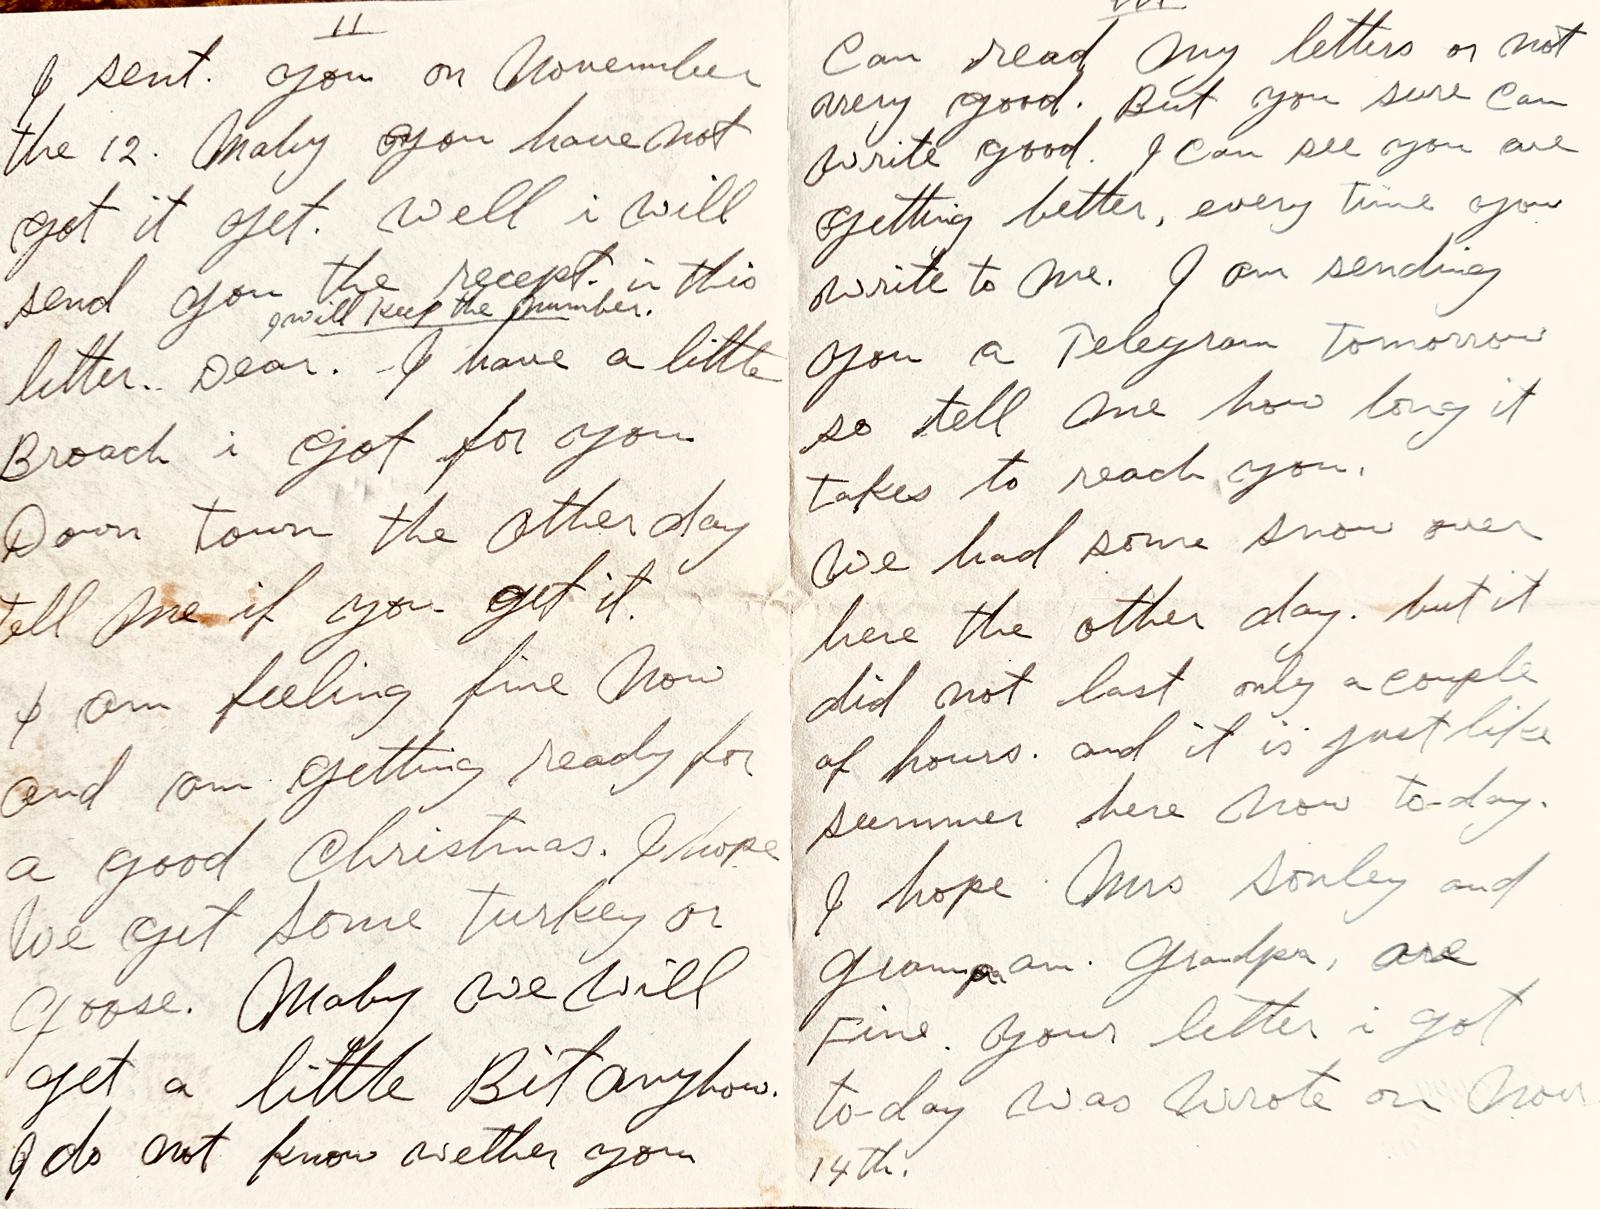 11
I sent. you on Novemnber
the 12. Maby you have not
got it yet. Well i will
send you the recept. in this
i will keep the number.
letter.. Dear. - I have a little
Broach i got for you
Down town the other day
tell me if you get it.
I am feeling fine Now
and am getting ready for
a good Christmas. I hope
We get some turkey or
goose. Maby we will
get a little Bit anyhow.
I do not know wether you
111
Can read My letters or not
very good. But you sure Can
write good. I Can see you are
getting better, every time you
write to Me. I am sending
you a Telegram tomorrow
so tell Me how long it
takes to reach you.
We had some snow over
here the other day. but it
did not last only a couple
of hours. and it is just like
summer here Now to-day.
I hope Mrs Sonley and
Grandpa, are
Fine. your letter i got
to-day was Wrote on Nov
14th.